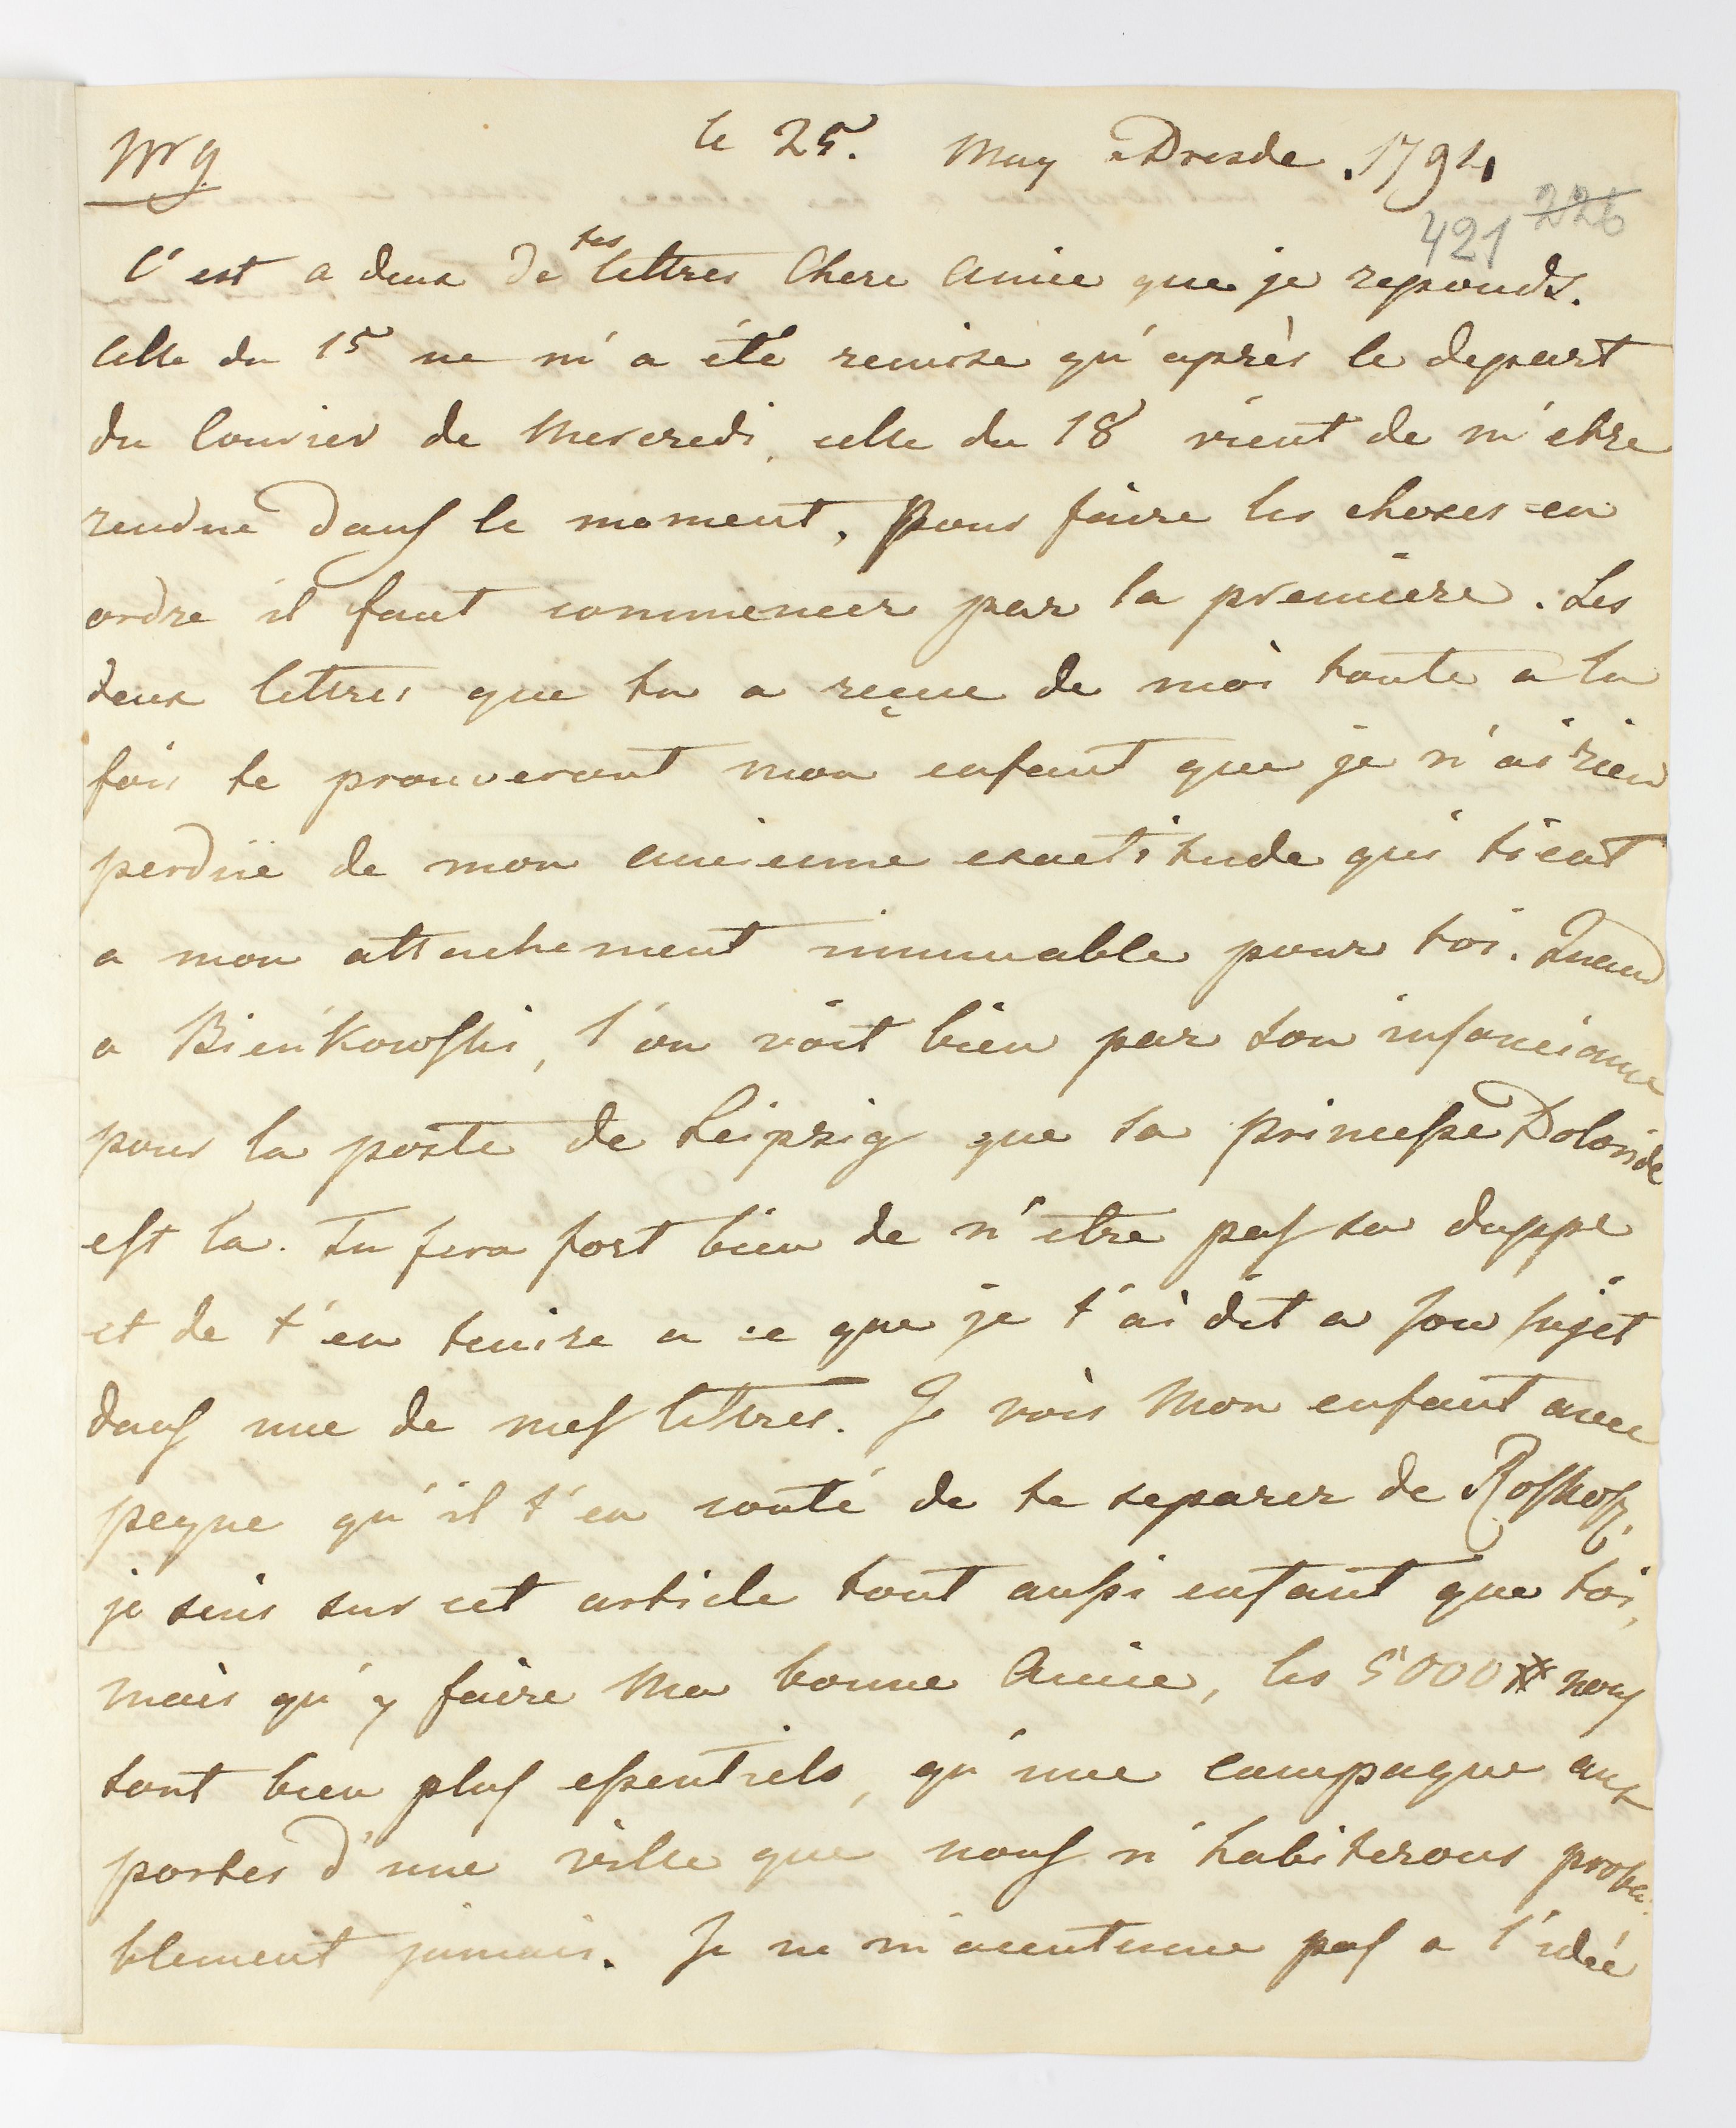 Nr 9.
le 25. May a Dresde 1794
421 226
C'est a deux de tes lettres Chere Amie que je reponds.
Celle du 15 ne m'a été remise qu'après le depart
du Courier de Mercredi, celle du 18 vient de m'etre
rendue dans le moment, Pour faire les choses en
ordre il faut commencer par la premiere. Les
deux lettres que tu a reçue de moi toute a la
fois te prouveront mon enfant que je n'ai rien
perdüe de mon ancienne exactitude qui tient
a mon attachement immuable pour toi. Quand
a Bieńkowski, l'on voit bien par son insouciance
pour la poste de Leipzig que sa princesse Doloride
est la. Tu fera fort bien de n'etre pas sa duppe
et de t'en tenire a ce que je t'ai dit a son sujet
dans une de mes lettres. Je vois Mon enfant avec
peyne qu'il t'en couté de te separer de
je suis sur cet article tout aussi enfant que toi,
mais qu'y faire Ma bonne Amie, les 5000 # nous
sont bien plus essentiels, qu'une campagne aux
portes d'une ville que nous n'habiterons proba-
blement jamais. Je ne m'acoutume pas a l'idée